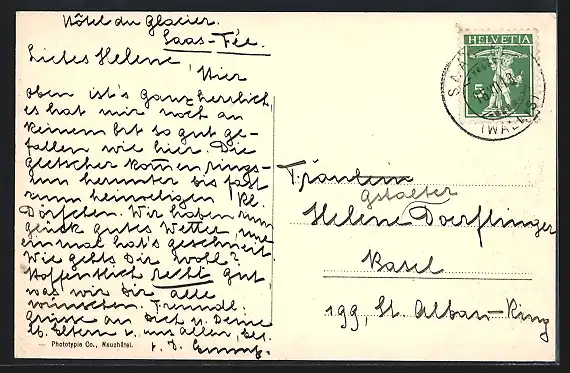 Hôtel du Glacier.
Saas-Fée.
Liebes Helene! Hier
oben ist's ganz herrlich,
es hat mir noch an
keinem Ort so gut ge-
fallen wie hier. Die
Gletscher kommen rings-
um herunter bis fast
zum heimeligen kl.
Dörfchen. Wir haben zum
Glück gutes Wetter, nur
einmal hat's geschneit.
Wie gehts Dir wohl?
Hoffentlich recht gut,
was wir Dir alle
wünschen. Freundl.
Grüsse an Dich u. Deine
lb. Eltern v. uns allen, bes.
v. D.
Phototypie Co., Neuchâtel.
HELVETIA
5
SAAS
(WALLIS)
Fräulein
Helene Doerflinger
Basel
199, St. Alban-Ring